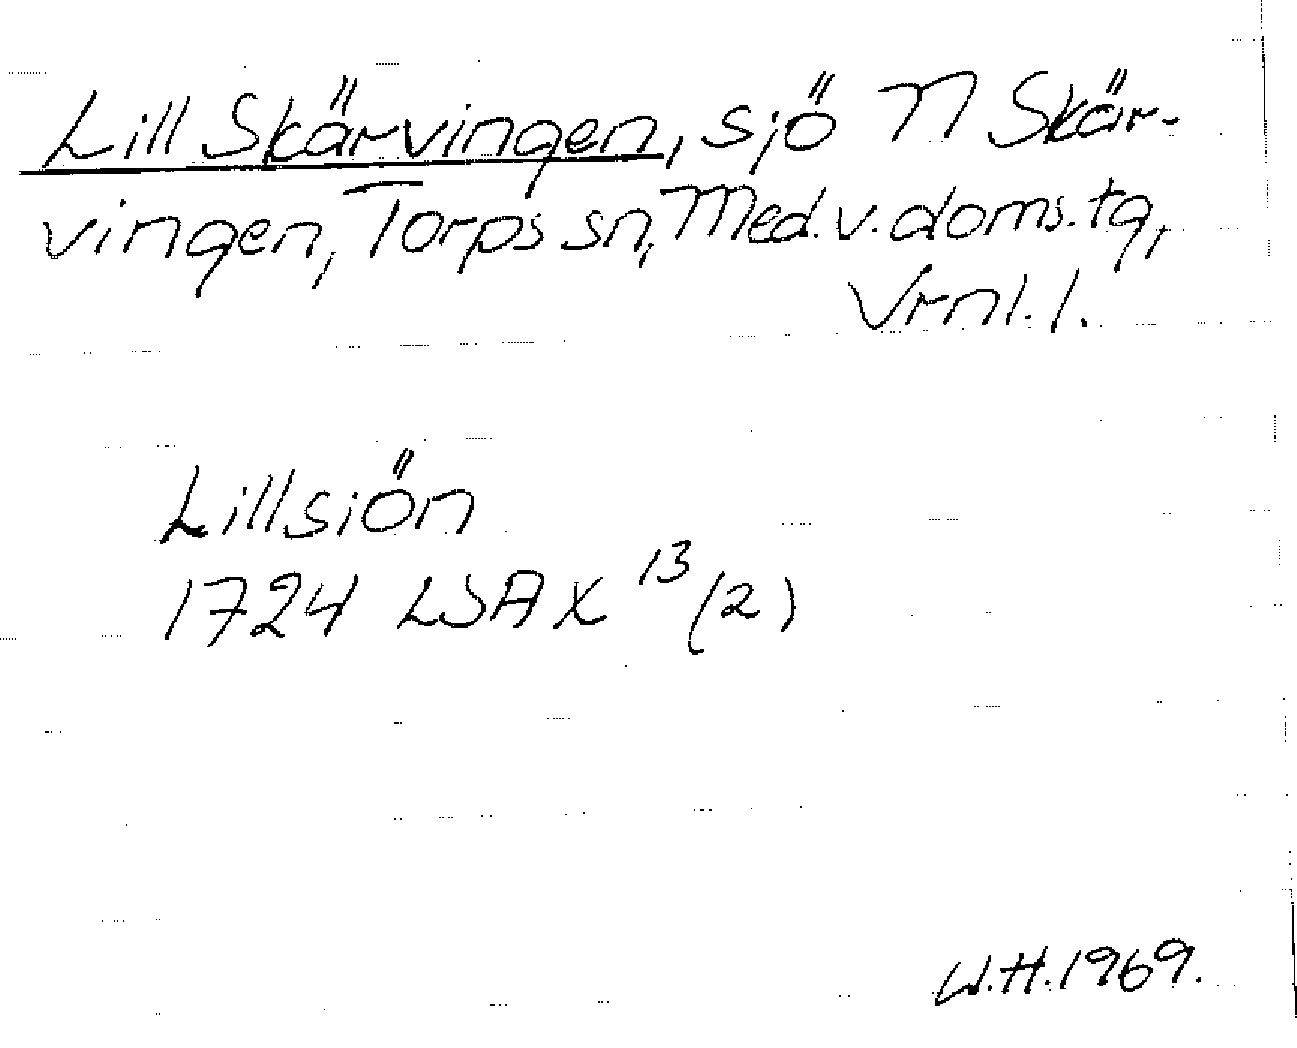 Lill Skärvingen, sjö N Skär-
vingen, Torps sn, Med. v. doms. tg,
Vrnl. l.
Lillsiön
1724 LSA X 13 (2)
W.H. 1969.